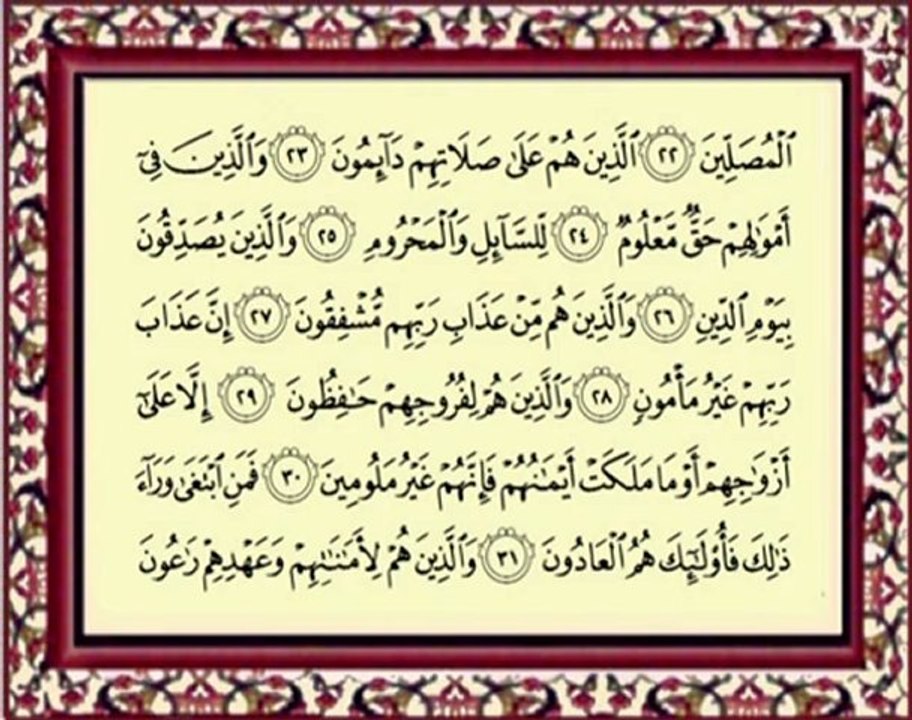 ٱلْمُصَلِّينَ ٢٢ ٱلَّذِينَ هُمْ عَلَىٰ صَلَاتِهِمْ دَآئِمُونَ ٢٣ وَٱلَّذِينَ فِىٓ
أَمْوَٰلِهِمْ حَقٌّ مَّعْلُومٌ ٢٤ لِّلسَّآئِلِ وَٱلْمَحْرُومِ ٢٥ وَٱلَّذِينَ يُصَدِّقُونَ
بِيَوْمِ ٱلدِّينِ ٢٦ وَٱلَّذِينَ هُم مِّنْ عَذَابِ رَبِّهِم مُّشْفِقُونَ ٢٧ إِنَّ عَذَابَ
رَبِّهِمْ غَيْرُ مَأْمُونٍ ٢٨ وَٱلَّذِينَ هُمْ لِفُرُوجِهِمْ حَٰفِظُونَ ٢٩ إِلَّا عَلَىٰٓ
أَزْوَٰجِهِمْ أَوْ مَا مَلَكَتْ أَيْمَٰنُهُمْ فَإِنَّهُمْ غَيْرُ مَلُومِينَ ٣٠ فَمَنِ ٱبْتَغَىٰ وَرَآءَ
ذَٰلِكَ فَأُو۟لَٰٓئِكَ هُمُ ٱلْعَادُونَ ٣١ وَٱلَّذِينَ هُمْ لِأَمَٰنَٰتِهِمْ وَعَهْدِهِمْ رَٰعُونَ